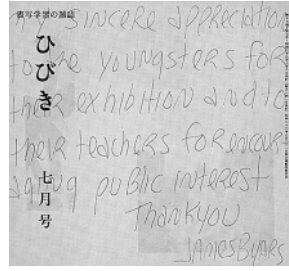 書写学習の雑誌
ひびき
七月号
sincere appreciation
to the youngsters for
their exhibition and to
their teachers for encour
aging public interest
Thank you
James Byars